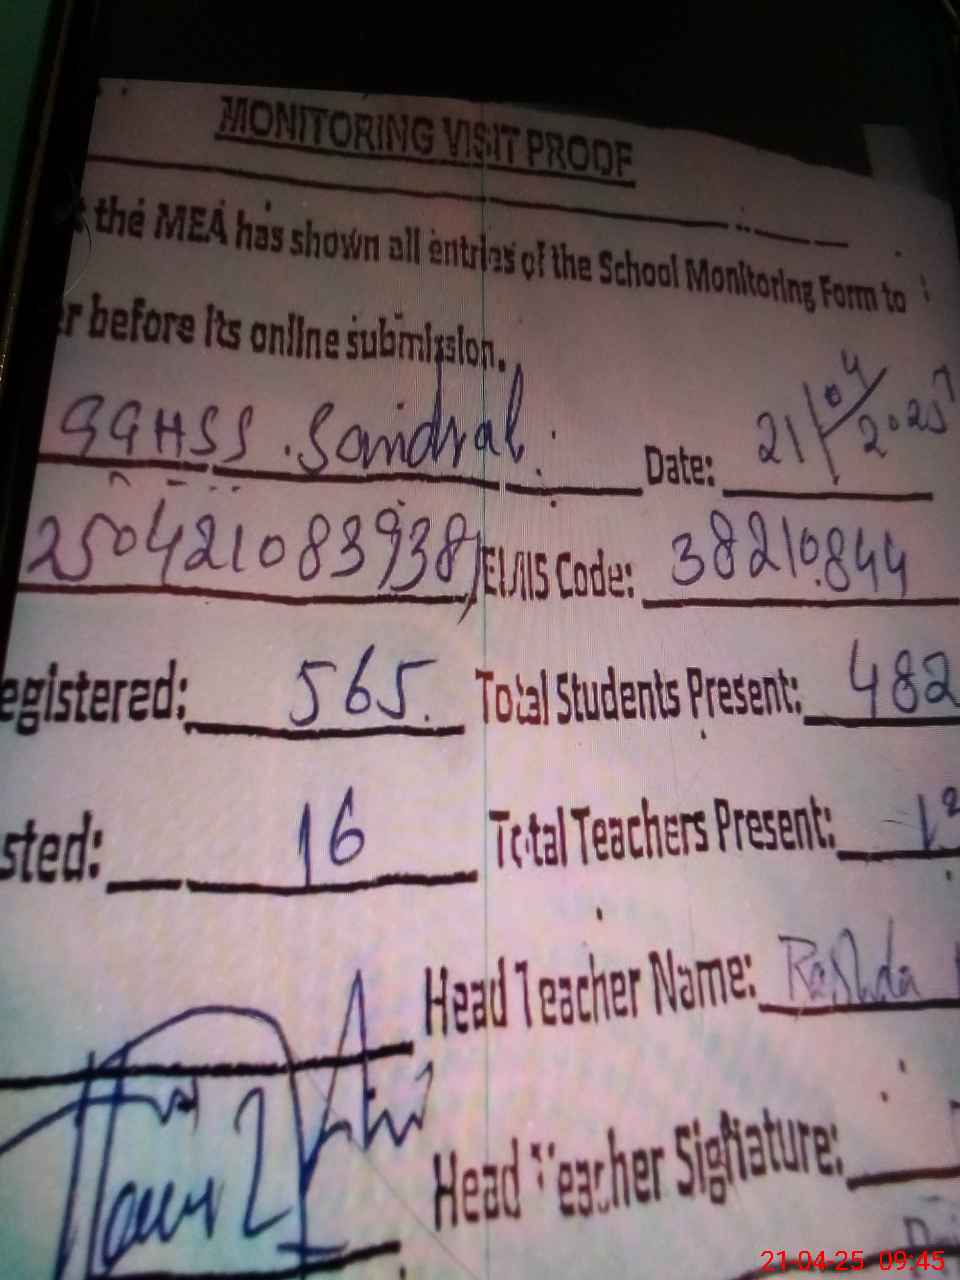 MONITORING VISIT PROOF
the MEA has shown all entries of the School Monitoring Form to
r before its online submission.
GGHSS. Sandral. Date: 21/04/2025
250421083938 EMIS Code: 38210844
egistered: 565. Total Students Present: 482
sted: 16 Total Teachers Present:
Head Teacher Name: Rashda
Head Teacher Signature:
21-04-25 09:45